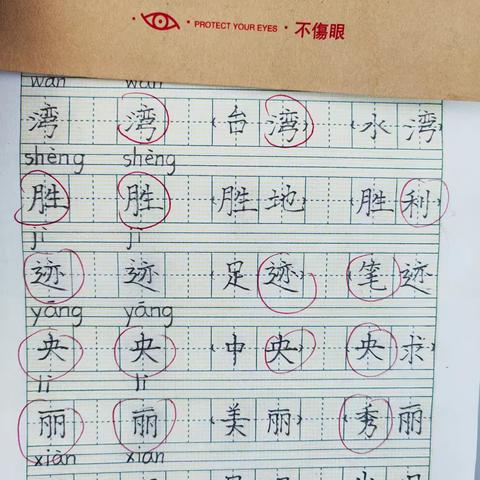 PROTECT YOUR EYES 不傷眼
wān wān
湾 湾 (台湾) (水湾)
shèng shèng
胜 胜 (胜地) (胜利)
jì jì
迹 迹 (足迹) (笔迹)
yāng yāng
央 央 (中央) (央求)
lì lì
丽 丽 (美丽) (秀丽)
xiàn xiàn